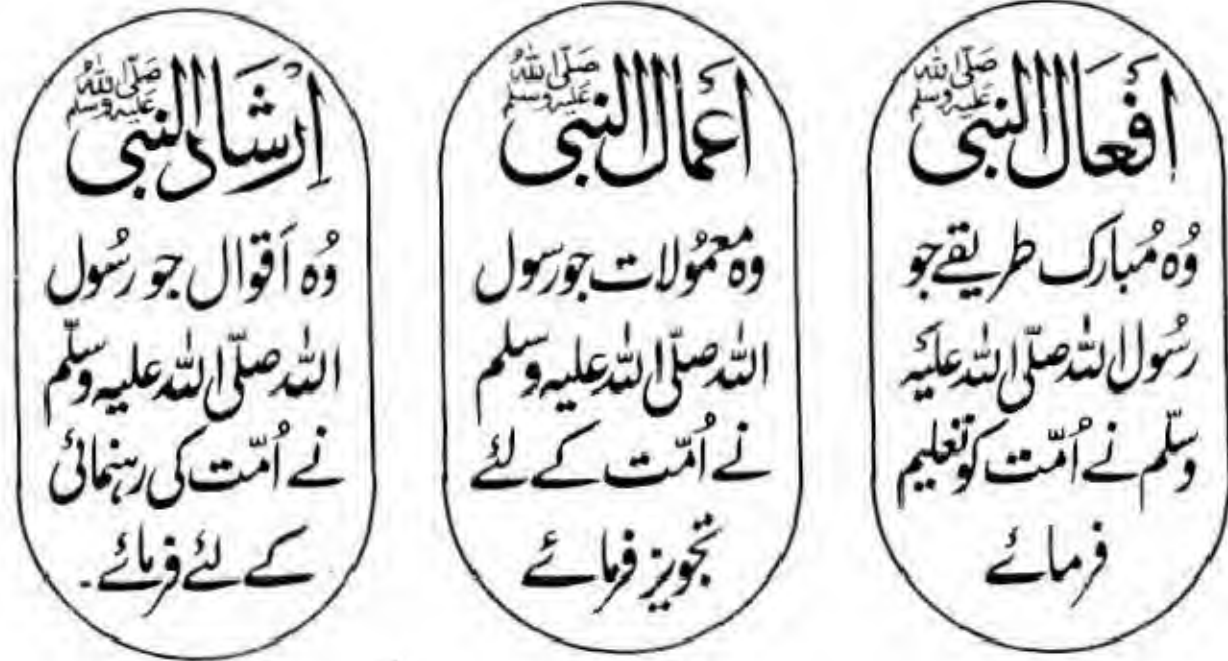 اَفْعَالُ النبی صَلَّی اللہُ عَلَیْہِ وَسَلَّم
وُہ مُبارک طریقے جو
رسُول اللہ صلّی اللہ علیَہ
وسلّم نے اُمّت کو تعلیم
فرمائے
اَعمالُ النبی صَلَّی اللہُ عَلَیْہِ وَسَلَّم
وہ معمُولات جو رسول
اللہ صلّی اللہ علیہ وسلم
نے اُمّت کے لئے
تجویز فرمائے
اِرْشَادُ النبی صَلَّی اللہُ عَلَیْہِ وَسَلَّم
وُہ اَقوال جو رسُول
اللہ صلّی اللہ علیہ وسلّم
نے اُمّت کی رہنمائی
کے لئے فرمائے۔